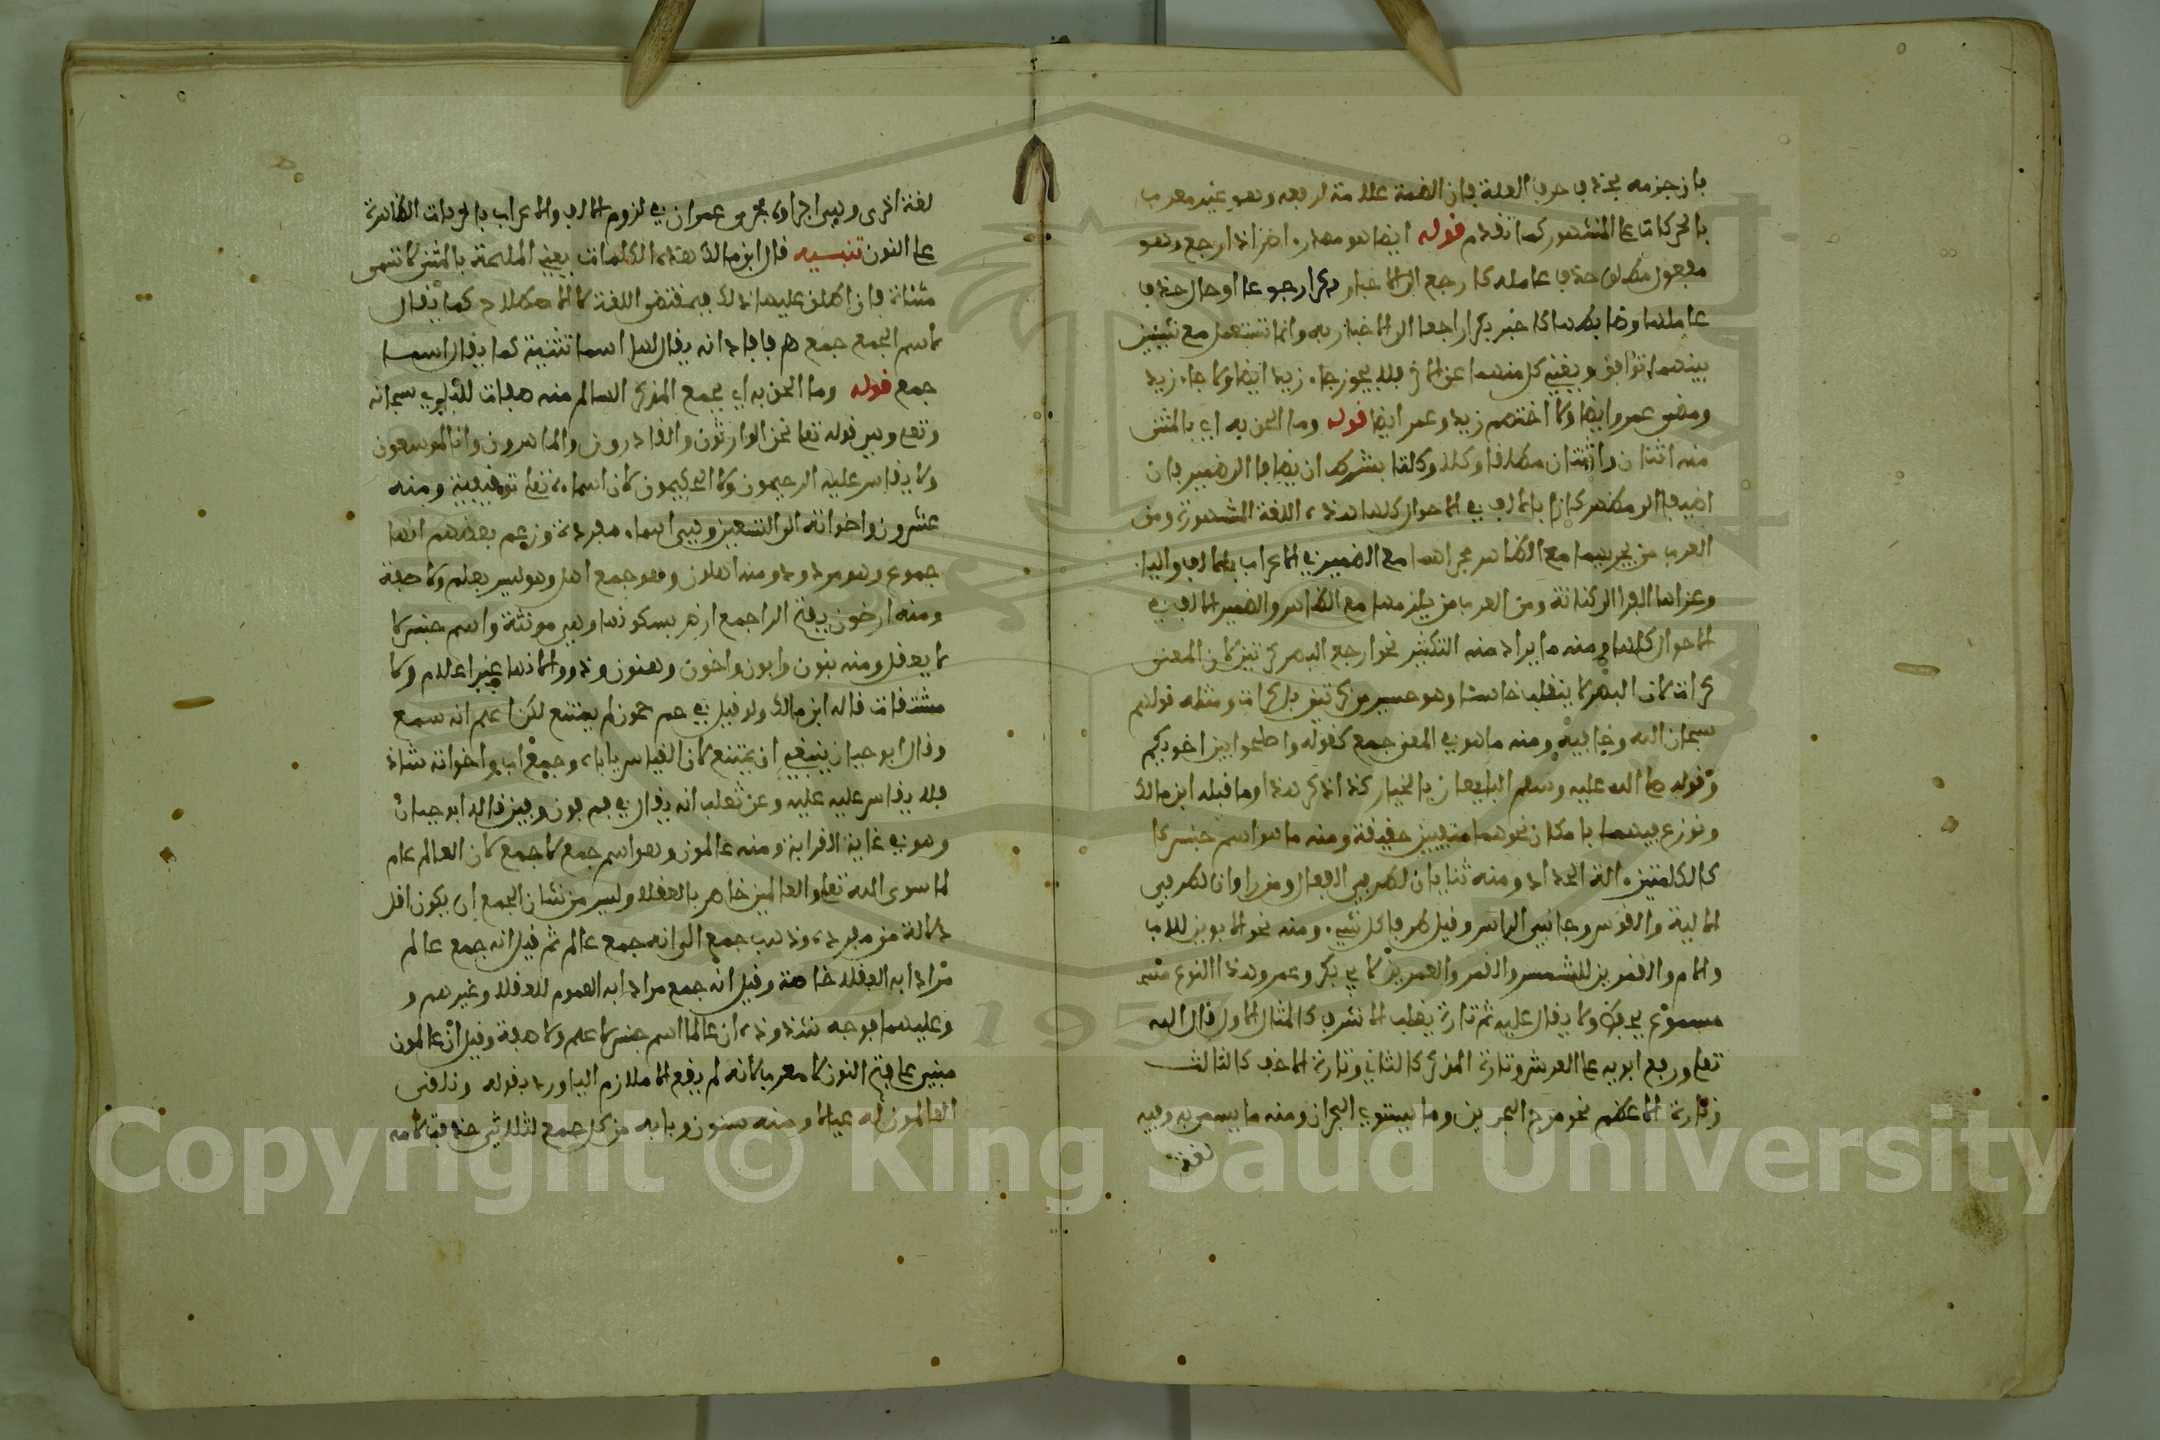 فان جزمه بحذف حرف العلة فان الضمة علامة لرفعه وهو غير معرب
بالحركات على المشهور كما تقدم قوله ايضا هو مصدر اض اذا رجع وهو
مفعول مطلق حذف عامله كارجع الى الاخبار رجوعا او حال حذف
عاملها وصاحبها كاخبر راجعا الى الاخبار به وانما تستعمل مع شيئين
بينهما توافق ويغني كل منهما عن الاخر فلا يجوز جاء زيد ايضا ولا جاء زيد
ومضى عمرو ايضا ولا اختصم زيد وعمر ايضا قوله وما الحق به اي بالمثنى
منه اثنان واثنتان مطلقا وكلا وكلتا بشرط ان يضافا الى ضمير فان
اضيفا الى مظهر كانا بالالف في الاحوال كلها هذه اللغة المشهورة ومن
العرب من يجريهما مع الظاهر مجراهما مع الضمير في الاعراب بالالف والياء
وعزاها الفرا الى كنانة ومن العرب من يلزمهما مع الظاهر والضمير الالف في
الاحوال كلها ومنه ما يراد منه التكثير نحو ارجع البصر كرتين لان المعنى
كرات لان البصر لا ينقلب خاسئا وهو حسير من كرتين بل كرات ومثله قولهم
سبحان الله وحنانيه ومنه ما هو في المعنى جمع كقوله واصلحوا بين اخويكم
وقوله صلى الله عليه وسلم البايعان بالخيار كذا ذكر هذا وما قبله ابن مالك
ونوزع فيهما بامكان نحوهما مثنيين حقيقة ومنه ما هو اسم جنس
كالكلبتين الة الحداد ومنه ثنايان لطرفي العقال ومذروان لطرفي
الالية والقوس وجانبي الراس وقيل طرفا كل شيء ومنه نحو الابوين للاب
والام والقمرين للشمس والقمر والعمرين لابي بكر وعمر وهذا النوع منه
مسموع يحفظ ولا يقاس عليه ثم تارة يغلب الاشرف كالمثال الاول قال الله
تعلى ورفع ابويه على العرش وتارة المذكر كالثاني وتارة الاخف كالثالث
وتارة الاعظم نحو مرج البحرين وما يستوي البحران ومنه ما يسمى به وفيه
لغة
لغة اخرى وهي اجراوه مجرى عمران في لزوم الالف والاعراب بالحركات الظاهرة
على النون تنبيه قال ابن مالك هذه الكلمات يعني الملحقة بالمثنى لا تسمى
مثناة فان اطلق عليها ذلك فبمقتضى اللغة لا الاصطلاح كما يقال
لاسم الجمع جمع فافاد انه يقال لها اسما تثنية كما يقال اسما
جمع قوله وما الحق به اي بجمع المذكر السالم منه صفات للباري سبحانه
وتعلى وهي قوله تعلى نحن الوارثون والقادرون والماهدون وانا لموسعون
ولا يقاس عليه الرحيمون ولا الحكيمون لان اسماءه تعلى توقيفية ومنه
عشرون واخواته الى التسعين وهي اسماء مفردة وزعم بعضهم انها
جموع وهو مردود ومنه اهلون وهو جمع اهل وهو ليس بعلم ولا صفة
ومنه ارضون بفتح الرا جمع ارض بسكونها وهي مونثة واسم جنس
لا يعقل ومنه بنون وابون واخون وهنون وذوو لانها غير اعلام ولا
مشتقات قاله ابن مالك ولو قيل في حم حمون لم يمتنع لكن لا علم انه سمع
وقال ابو حيان ينبغي ان يمتنع لان القياس ياباه وجمع اب واخواته شاذ
فلا يقاس عليه وعن ثعلب انه يقال في فم فون وفين قال ابو حيان
وهو في غاية الغرابة ومنه عالمون وهو اسم جمع لا جمع لان العالم عام
لما سوى الله تعلى والعالمين خاص بالعقلا وليس من شان الجمع ان يكون اقل
دلالة من مفرده وذهب جمع الى انه جمع عالم ثم قيل انه جمع عالم
مرادا به العقلا خاصة وقيل انه جمع مرادا به العموم للعقلا وغيرهم و
وعليهما فوجه شذوذه ان عالما اسم جنس لا علم ولا صفة وقيل ان عالمون
مبني على فتح النون لا معرب لانه لم يقع الا ملازم اليا ورد بقوله
العالمون له عيالا ومنه سنون وبابه من كل جمع لثلاثي حذفت لامه
Copyright © King Saud University
1957